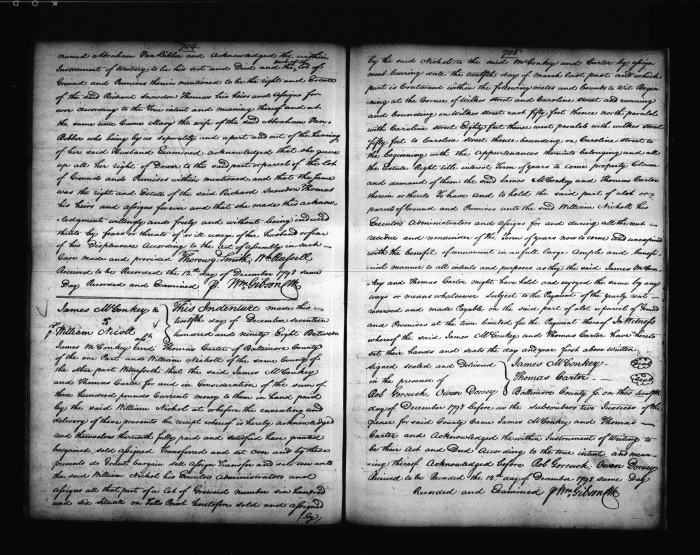 704
named Abraham Van Bibber and Acknowledged the within
Instrument of Writing to be his act and Deed and the Lot of
Ground and Premises therein mentioned to be the right and Estate
of the said Richard Snowden Thomas his heirs and assigns for
ever according to the true intent and meaning thereof and at
the same time Came Mary the wife of the said Abraham Van
Bibber who being by us separately and apart and out of the hearing
of her said Husband Examined acknowledged that she gave
up all her right of Dower to the said part or parcel of this Lot
of Ground and Premises within mentioned and that the same
was the right and Estate of the said Richard Snowden Thomas
his heirs and assigns forever and that she made this acknow
ledgment willingly and freely and without being induced
thereto by fears or threats of ill usage of her husband or fear
of his Displeasure According to the act of assembly in such
Case made and provided Thorowg. Smith, Wm Russell
Received to be Recorded the 12th day of December 1798 same
Day Recorded and Examined P Wm Gibson Clk
James McConkey &
William Nicoll
This Indenture made this
twelfth day of December seventeen
hundred and ninety Eight Between
James McConkey and Thomas Carter of Baltimore County
of the one Part and William Nicholl of the same County of
the other part Witnesseth that the said James McConkey
and Thomas Carter for and in Consideration of the sum of
three hundred pounds Current money to them in hand paid
by the said William Nicholl at or before the ensealing and
delivery of these presents the receipt whereof is hereby acknowledged
and themselves therewith fully paid and satisfied have granted
bargained sold assigned Transferred and set over and by these
presents do Grant bargain sell assign Transfer and sett over unto
the said William Nicholl his Executors Administrators and
assigns all that part of a Lot of Ground number six hundred
and six situate on Fells Point heretofore sold and assigned
by
705
by the said Nicholl to the said McConkey and Carter by assign
ment bearing date the twelfth day of March last past and which
part is Contained within the following metes and bounds to wit Begin
ning at the Corner of Wilkes street and Caroline street and running
and bounding on Wilkes street east fifty feet thence north parallel
with Caroline street Eighty feet thence west parallel with Wilkes street
fifty feet to Caroline street thence bounding on Caroline street to
the beginning with the Appurtenances thereunto belonging and all
the Estate Right title interest term of years to come property Claim
and demand of them the said James McConkey and Thomas Carter
therein or thereto To have and to hold the said part of a lot or
parcel of Ground and Premises unto the said William Nicholl his
Executors Administrators and assigns for and during all the rest
residue and remainder of the term of years now to come and unexpired
with the benefit of renewment in as full large Ample and benefi
cial manner to all intents and purposes as they the said James McCon
key and Thomas Carter might have held and enjoyed the same by any
ways or means whatsoever subject to the Payment of the yearly rent
reserved and made Payable on the said part of a lot or parcel of Ground
and Premises at the time limited for the Payment thereof In Witness
whereof the said James McConkey and Thomas Carter have hereto
set their hands and seals the day and year first above written
signed sealed and delivered
in the presence of
Rob Gorsuch, Owen Dorsey
James McConkey
Thomas Carter
Baltimore County Js. on this twelfth
day of December 1798 before us the subscribers two Justices of the
peace for said County Came James McConkey and Thomas
Carter and Acknowledged the within Instrument of Writing to
be their Act and Deed According to the true intent and mean
ing thereof Acknowledged before Rob Gorsuch, Owen Dorsey
Received to be Recorded the 12th day of December 1798 same day
Recorded and Examined P Wm Gibson Clk